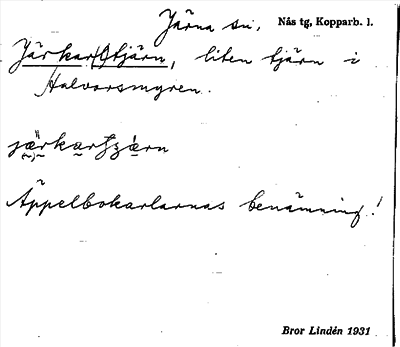 Järna sn. Nås tg, Kopparb. l.
Järkar(s)tjärn, liten tjärn i
Halvarsmyren.
Äppelbokarlarnas benämning!
Bror Lindén 1931